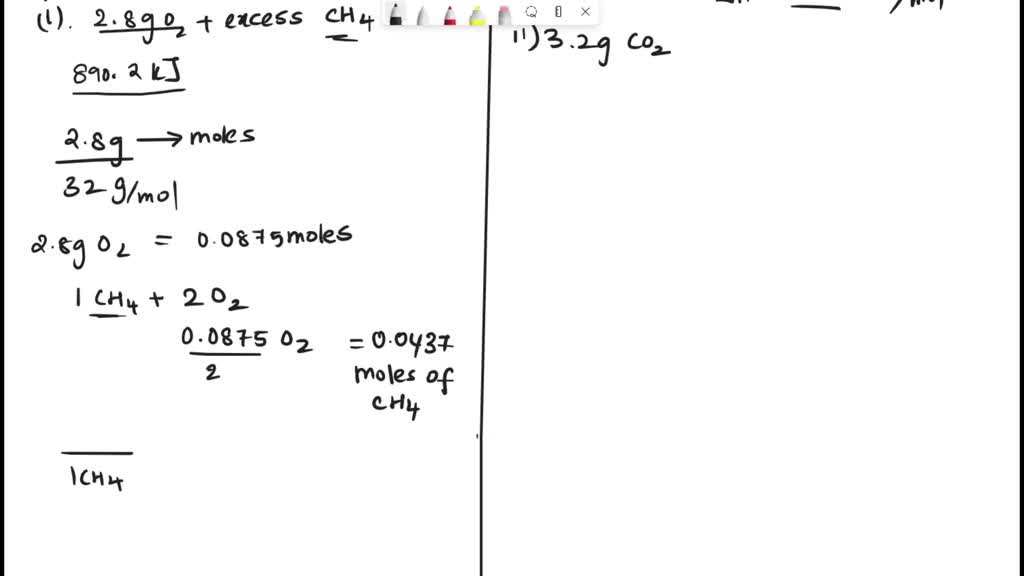 (1). 2.8g O2 + excess CH4
890.2 kJ
2.8g → moles
32 g/mol
2.8g O2 = 0.0875 moles
1 CH4 + 2 O2
0.0875 O2 = 0.0437
2 moles of
CH4
1CH4
11) 3.2g CO2